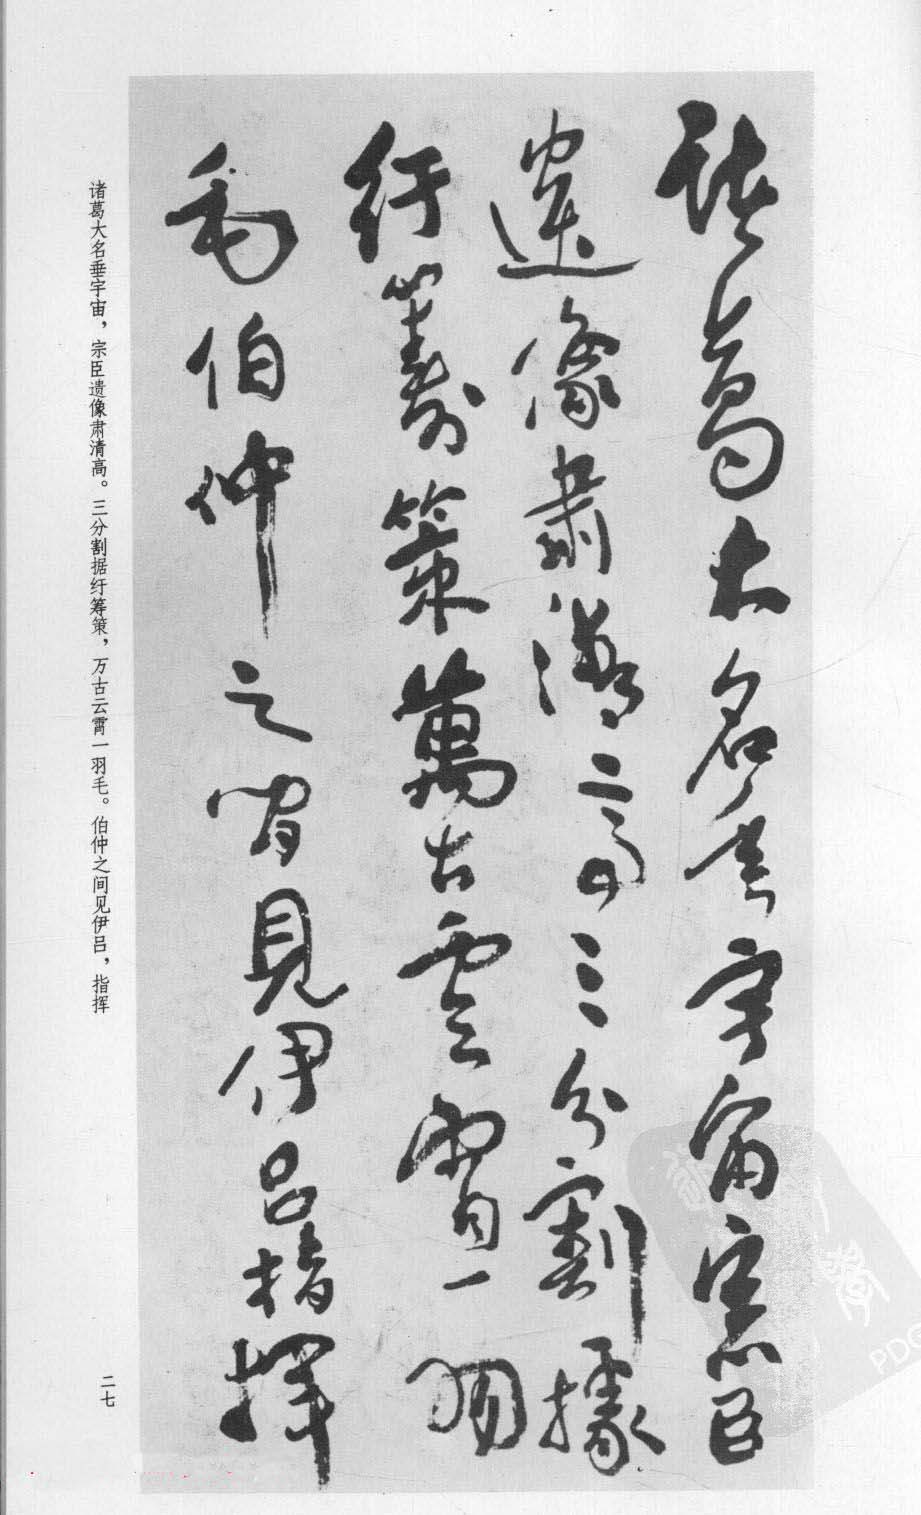 諸葛大名垂宇宙宗臣
遺像肅清高三分割據
紆籌策萬古雲霄一羽
毛伯仲之間見伊呂指揮
诸葛大名垂宇宙，宗臣遗像肃清高。三分割据纡筹策，万古云霄一羽毛。伯仲之间见伊吕，指挥
二七
PDG